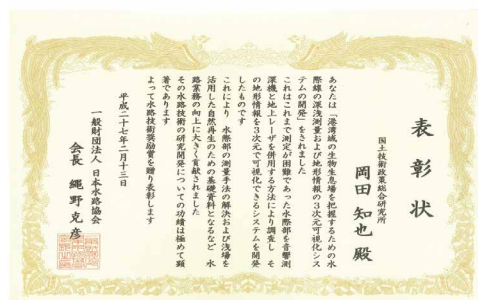 表彰状
国土技術政策総合研究所
岡田 知也 殿
あなたは「港湾域の生物生息場を把握するための水
際線の深浅測量および地形情報の3次元可視化シス
テムの開発」をされました
これはこれまで測定が困難であった水際部を音響測
深機と地上レーザを併用する方法により調査し そ
の地形情報を3次元で可視化できるシステムを開発
したものです
これにより 水際部の測量手法の解決および浅場を
活用した自然再生のための基礎資料となるなど 水
路業務の向上に大きく貢献されました
その水路技術の研究開発についての功績は極めて顕
著であります
よって水路技術奨励賞を贈り表彰します
平成二十七年二月十三日
一般財団法人 日本水路協会
会長 縄野 克彦